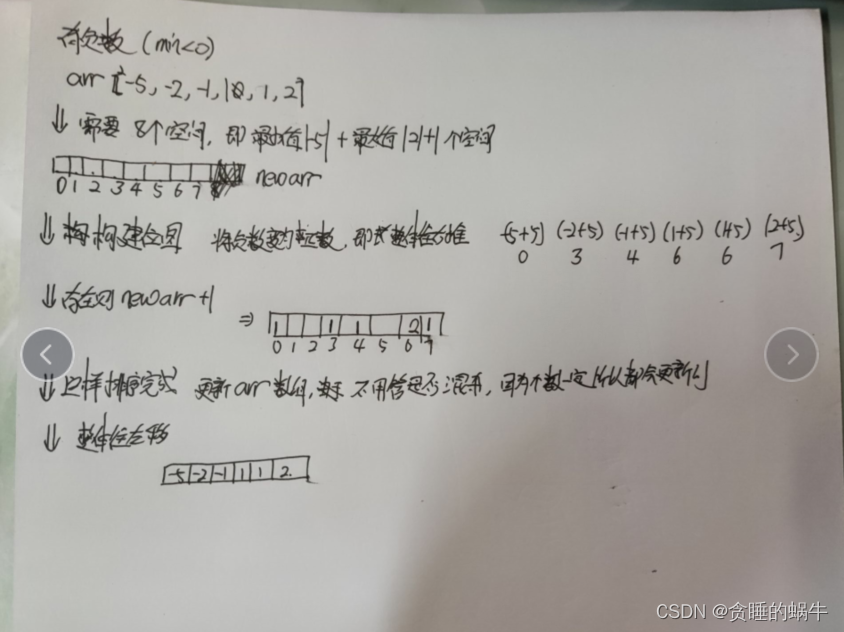 有负数 (min<0)
arr [-5, -2, -1, 1, 1, 2]
⇓ 需要 8个空间, 即 最小值|-5| + 最大值|2|+1 个空间
0 1 2 3 4 5 6 7 newarr
⇓ 构建位图 将负数变为正数, 即 整体往右推 (-5+5) (-2+5) (-1+5) (1+5) (1+5) (2+5)
0 3 4 6 6 7
⇓ 存在则 newarr+1
⇒ 1 1 1 2 1
0 1 2 3 4 5 6 7
⇓ 这样排序完成 更新arr数组, 不用管是否混乱, 因为个数一定 所以都会更新的
⇓ 整体往左移
-5 -2 -1 1 1 2
CSDN @贪睡的蜗牛